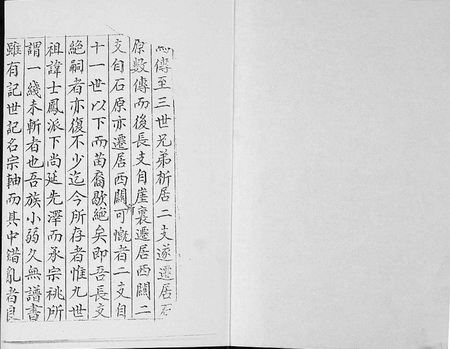 傳至三世兄弟析居二支遂遷居石
原數傳而後長支自崖襄遷居西關二
支自石原亦遷居西關可慨者二支自
十一世以下而苗裔歇絕矣即吾長支
絕嗣者亦復不少迄今所存者惟九世
祖諱士鳳派下尚延先澤而承宗祧所
謂一綫未斬者也吾族小弱久無譜書
雖有記世記名宗軸而其中錯亂者良